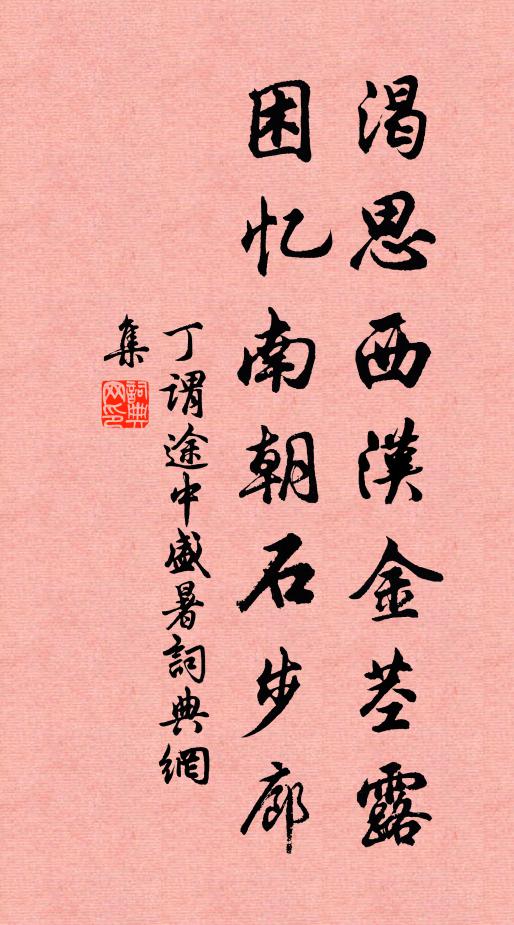 渴思西漢金茎露
困忆南朝石步廊
丁谓途中盛暑詞典網
集
詞典
网印